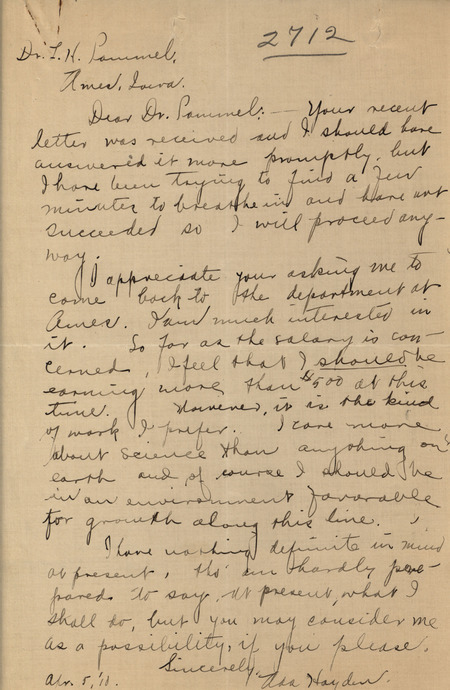 2712
Dr. L. H. Pammel,
Ames, Iowa.
Dear Dr. Pammel: — Your recent
letter was received and I should have
answered it more promptly, but
I have been trying to find a few
minutes to breathe in and have not
succeeded so I will proceed any-
way.
I appreciate your asking me to
come back to the department at
Ames. I am much interested in
it. So far as the salary is con-
cerned, I feel that I should be
earning more than $500 at this
time. However, it is the kind
of work I prefer. I care more
about science than anything on
earth and, of course I should be
in an environment favorable
for growth along this line.
I have nothing definite in mind
at present, tho' am hardly pre-
pared to say, at present, what I
shall do, but you may consider me
as a possibility, if you please.
Sincerely,
Apr. 5, '11. Ada Hayden.